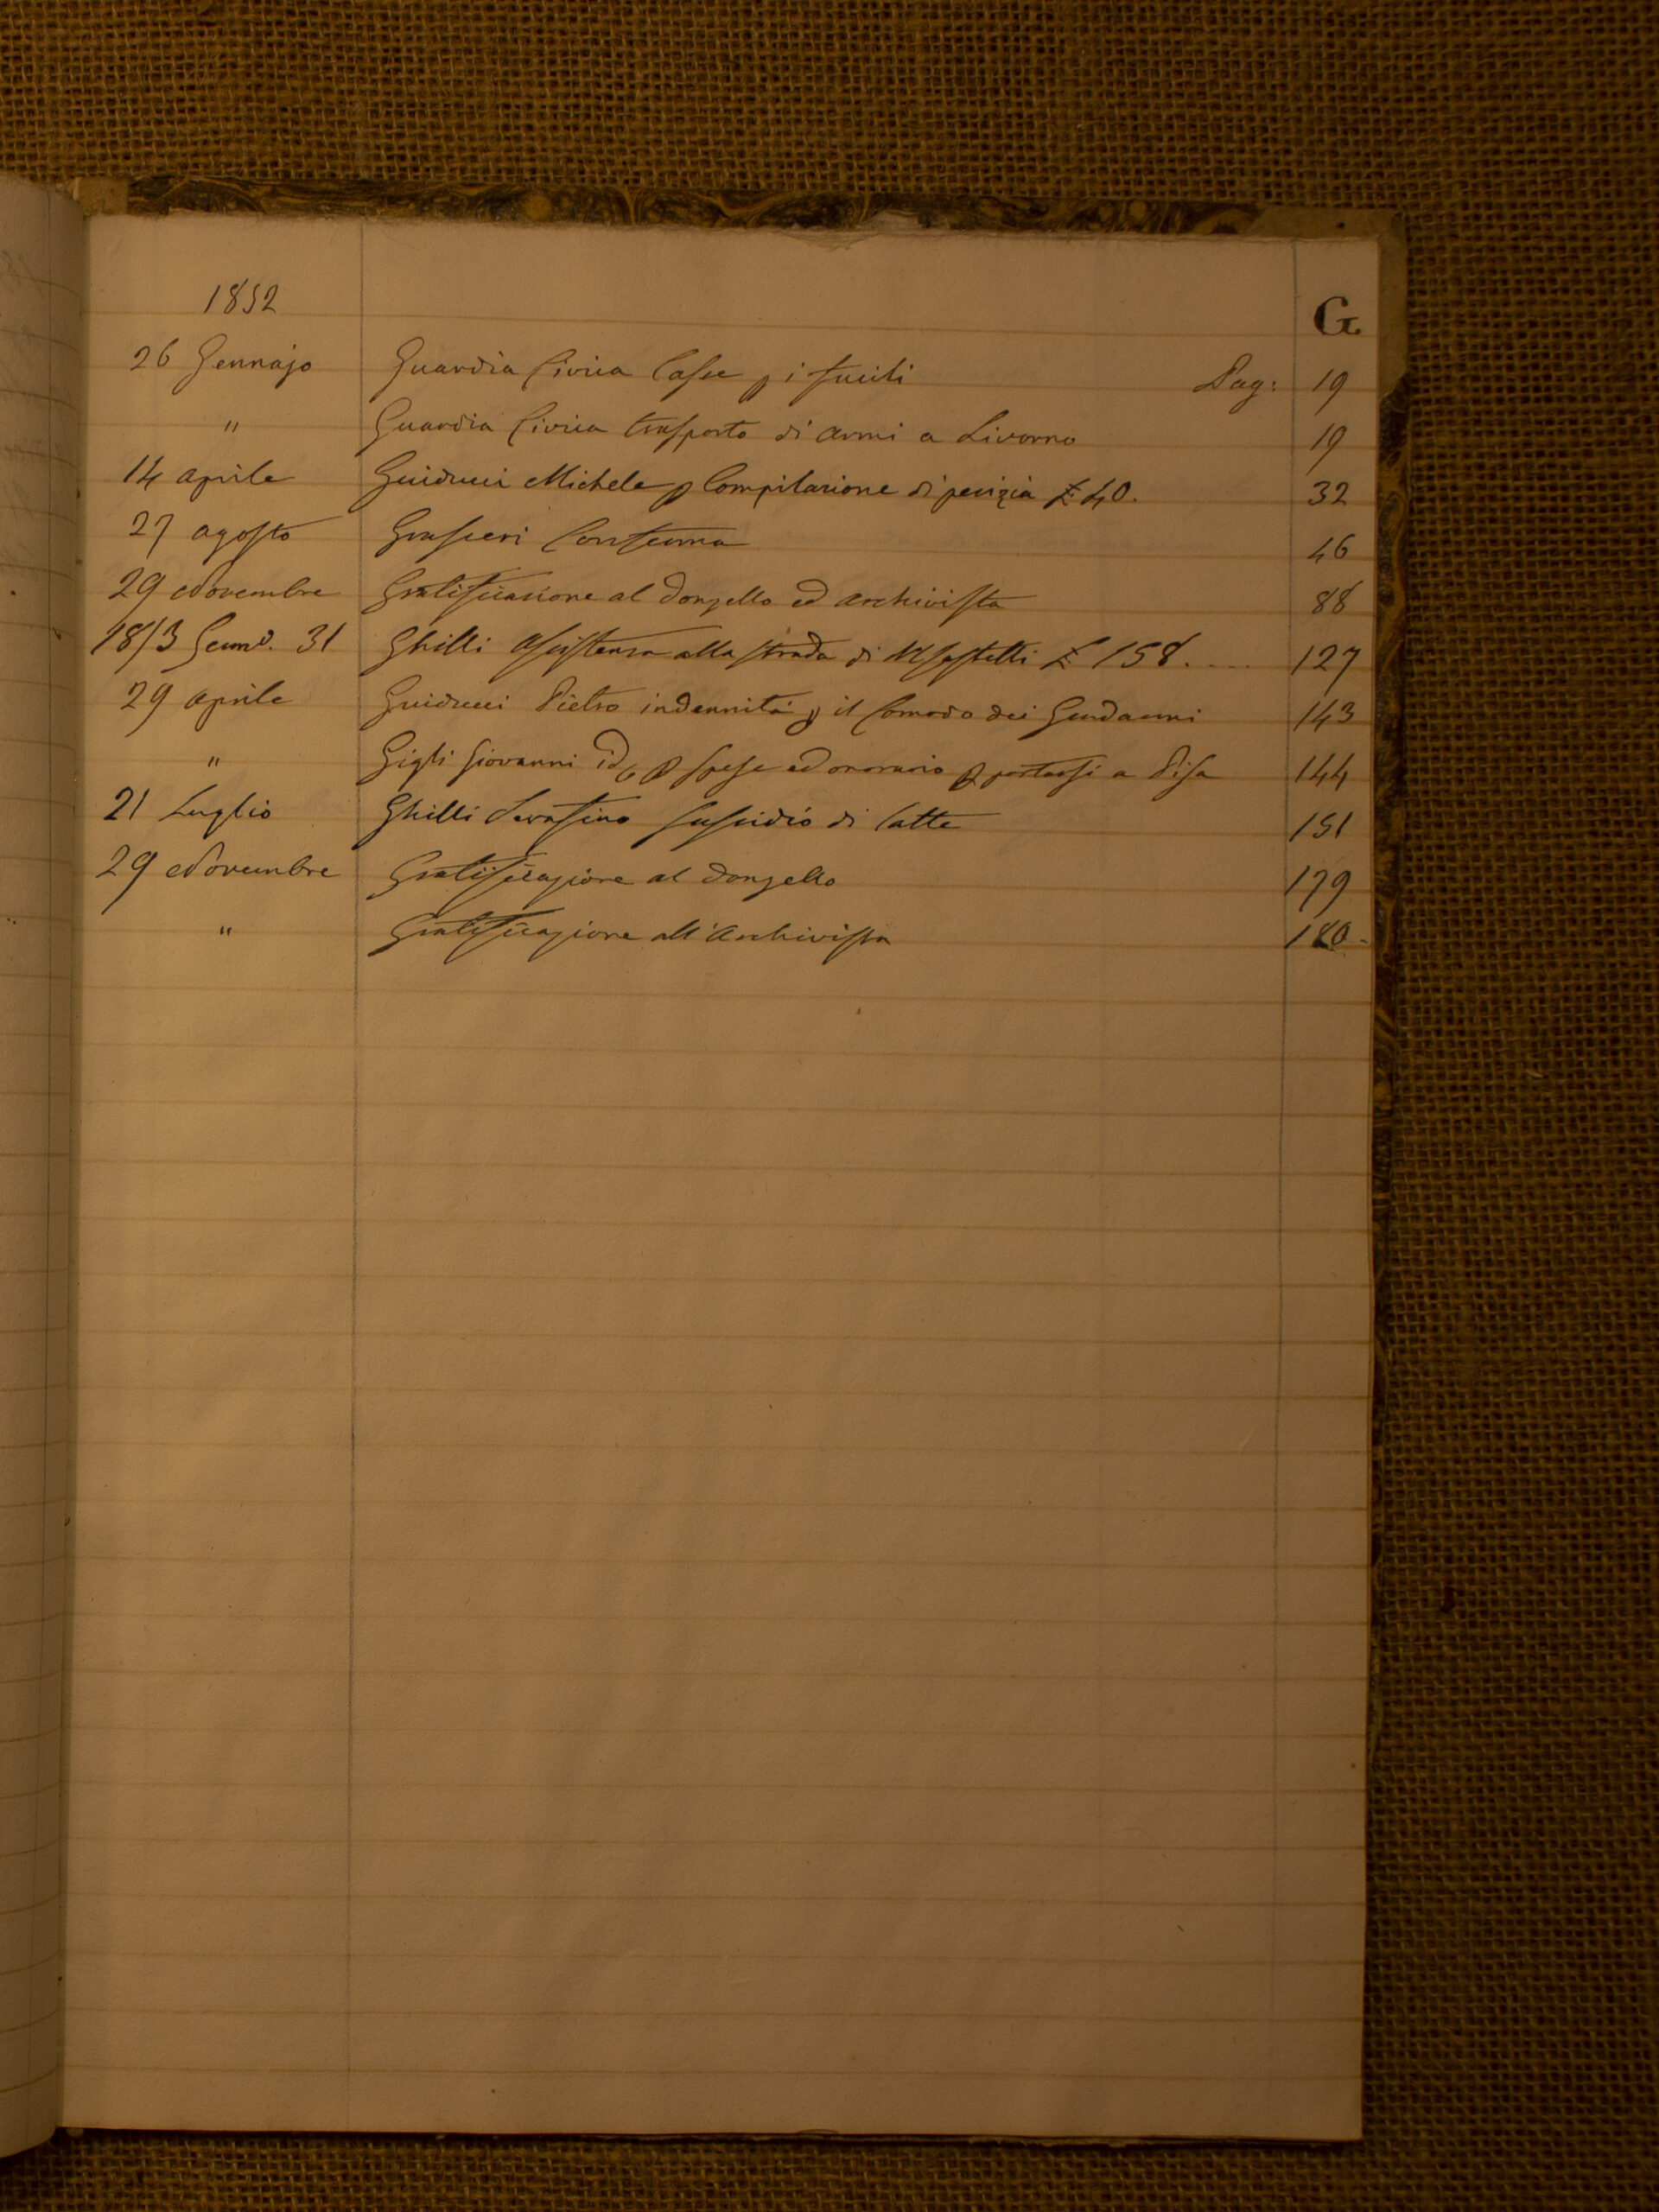 1852
G
26 Gennajo Guardia Civica Casse p i fucili Pag: 19
" Guardia Civica trasporto di armi a Livorno 19
14 aprile Guiducci Michele p Compilazione di perizia £ 40. 32
27 agosto Grascieri Conferma 46
29 Novembre Gratificazione al Donzello ed Archivista 88
1853 Genno. 31 Ghilli assistenza alla strada di £ 158. .... 127
29 aprile Guiducci Pietro indennità p il Comodo dei Gendarmi 143
" Gigli Giovanni id, p spese ed onorario p portarsi a Pisa 144
21 Luglio Ghilli Serafino sussidio di latte 151
29 Novembre Gratificazione al Donzello 179
" Gratificazione all'Archivista 180.